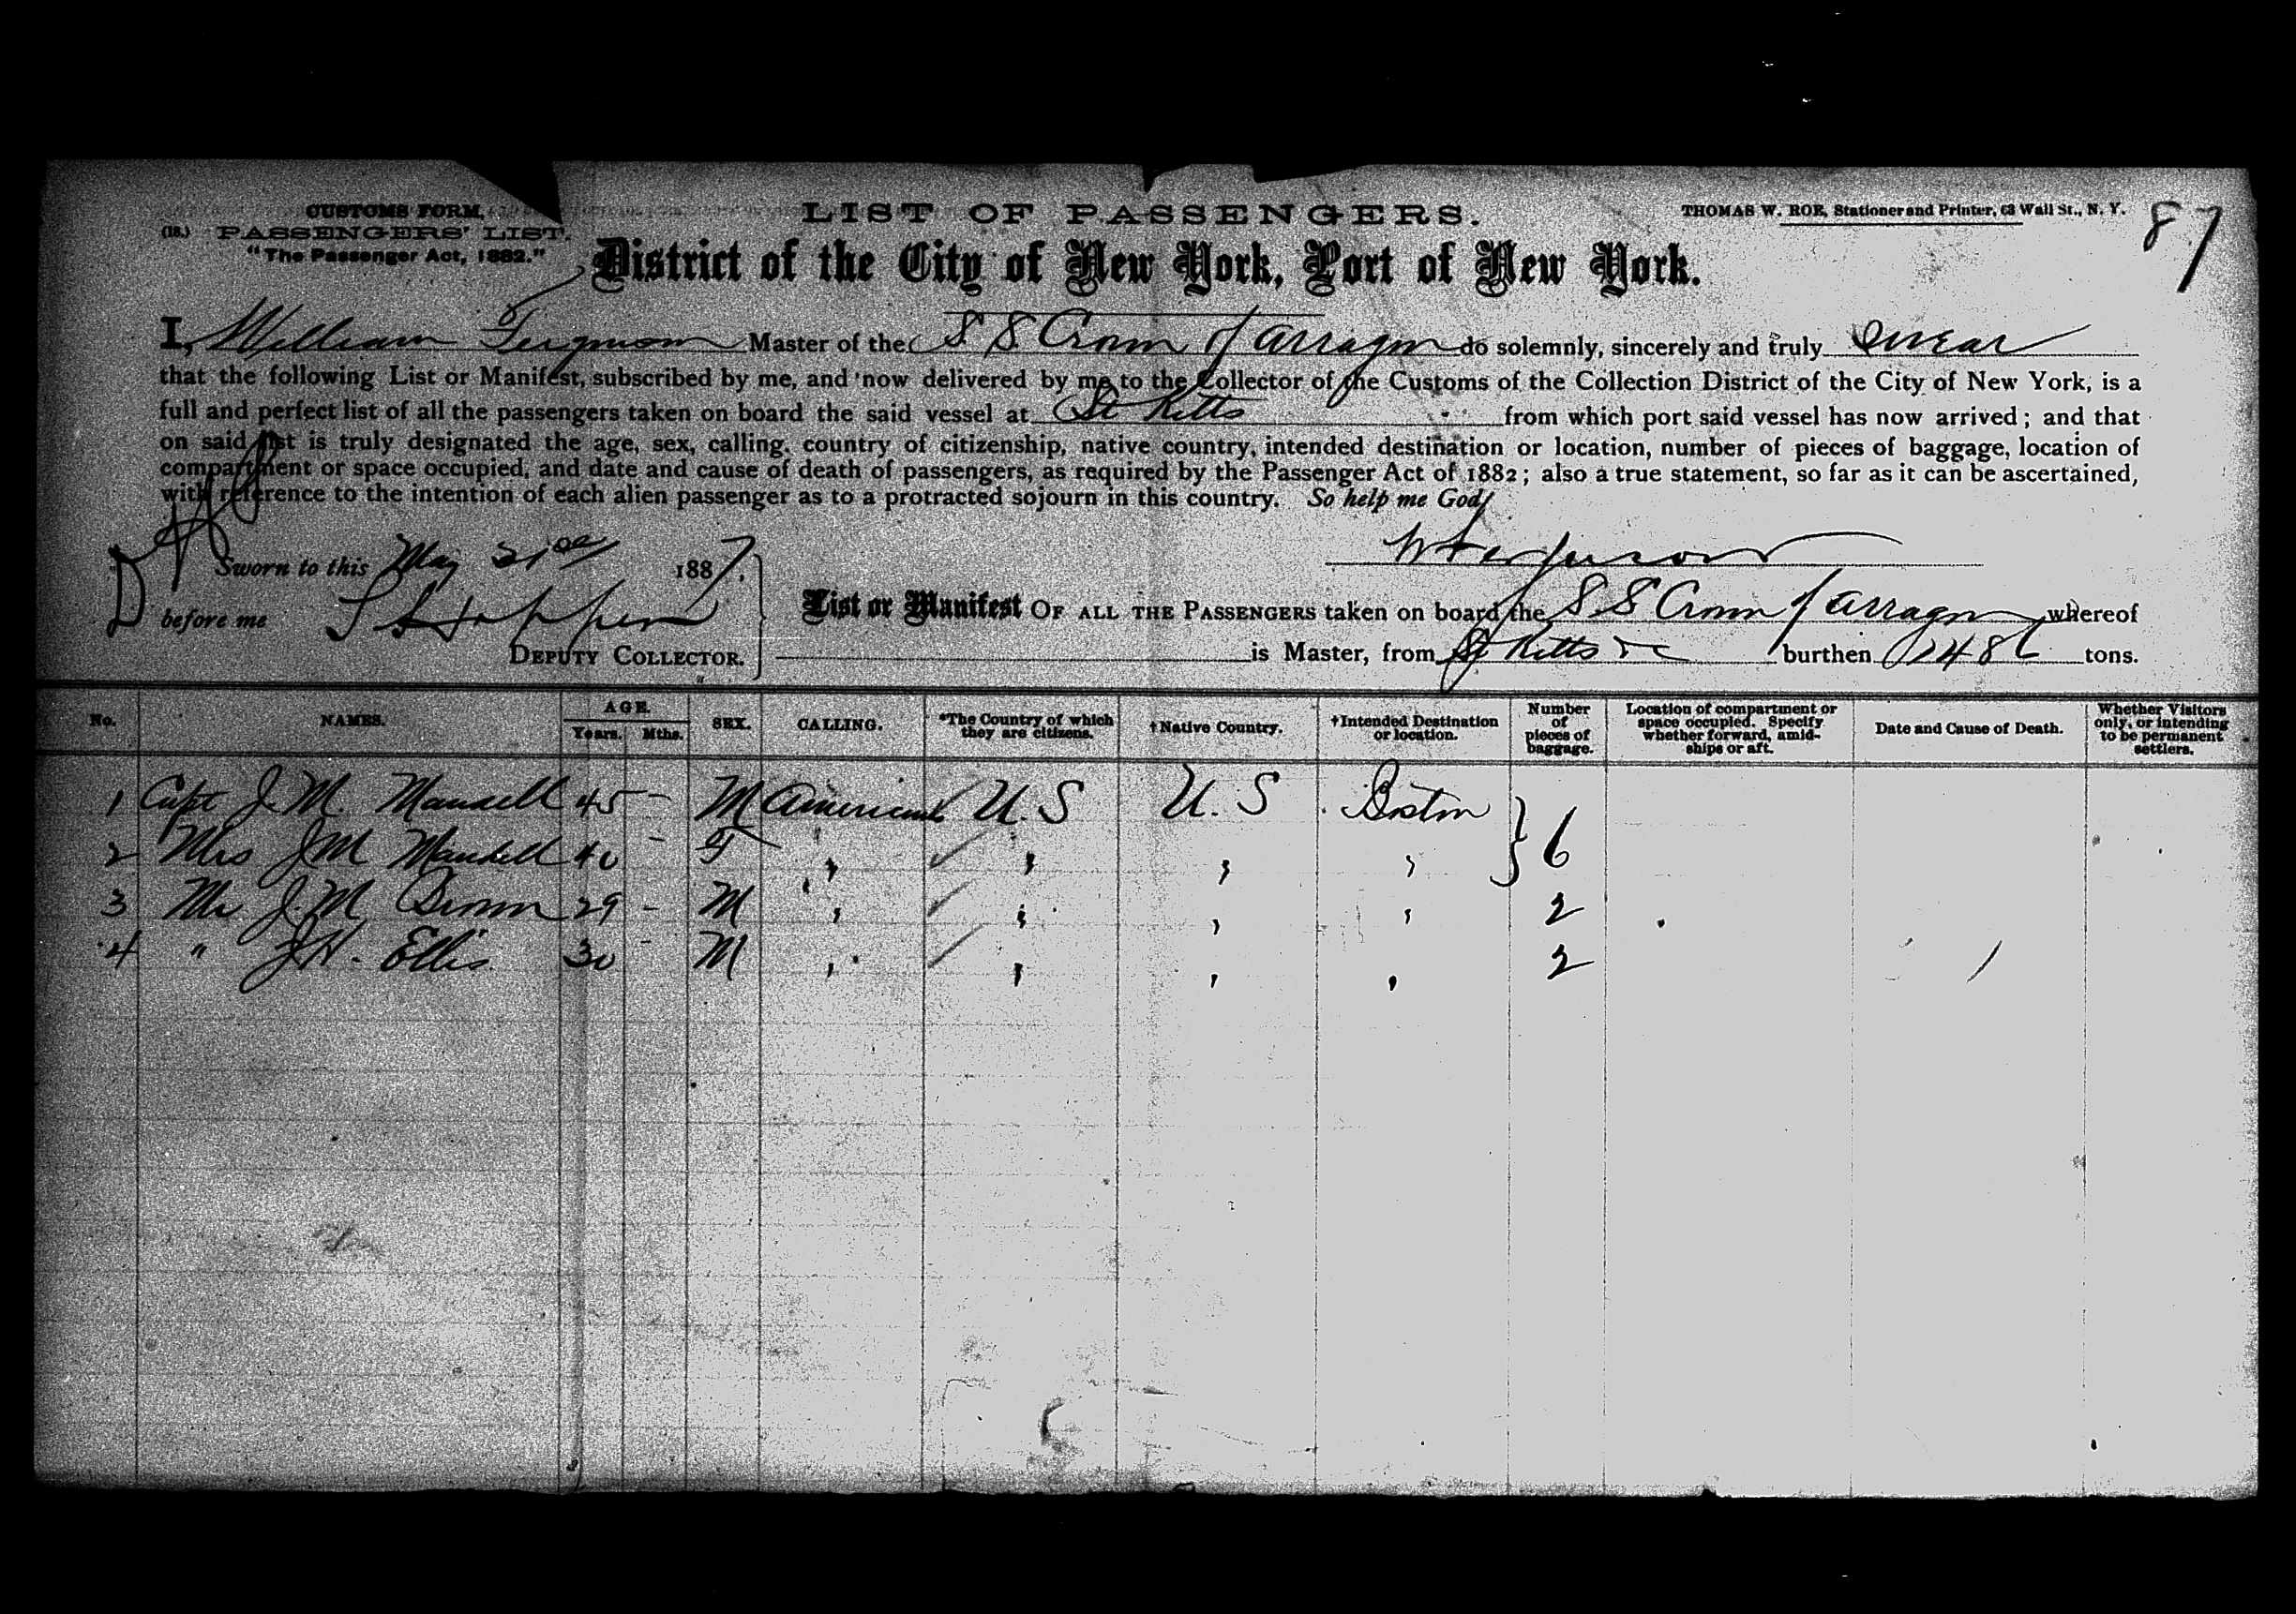 CUSTOMS FORM,
(18.) PASSENGERS' LIST.
"The Passenger Act, 1882."
LIST OF PASSENGERS.
THOMAS W. ROE, Stationer and Printer, 63 Wall St., N. Y.
87
District of the City of New York, Port of New York.
I, William Ferguson Master of the S S Crown of Arragon do solemnly, sincerely and truly swear
that the following List or Manifest, subscribed by me, and now delivered by me to the Collector of the Customs of the Collection District of the City of New York, is a
full and perfect list of all the passengers taken on board the said vessel at St Kitts from which port said vessel has now arrived; and that
on said list is truly designated the age, sex, calling, country of citizenship, native country, intended destination or location, number of pieces of baggage, location of
compartment or space occupied, and date and cause of death of passengers, as required by the Passenger Act of 1882; also a true statement, so far as it can be ascertained,
with reference to the intention of each alien passenger as to a protracted sojourn in this country. So help me God
W Ferguson
Sworn to this May 21st 1887.
before me
DEPUTY COLLECTOR.
List or Manifest OF ALL THE PASSENGERS taken on board the S.S Crown of Arragon whereof
is Master, from St Kitts &c burthen tons.
No. NAMES. AGE. Years. Mths. SEX. CALLING. *The Country of which they are citizens. †Native Country. †Intended Destination or location. Number of pieces of baggage. Location of compartment or space occupied. Specify whether forward, amidships or aft. Date and Cause of Death. Whether Visitors only, or intending to be permanent settlers.
1 Capt J. M. Mandell 45 - M American U.S U.S Boston } 6
2 Mrs J M Mandell 40 - F " " " "
3 Mr J. M. Brown 29 - M " " " " 2
4 " J H. Ellis 30 - M " " " " 2